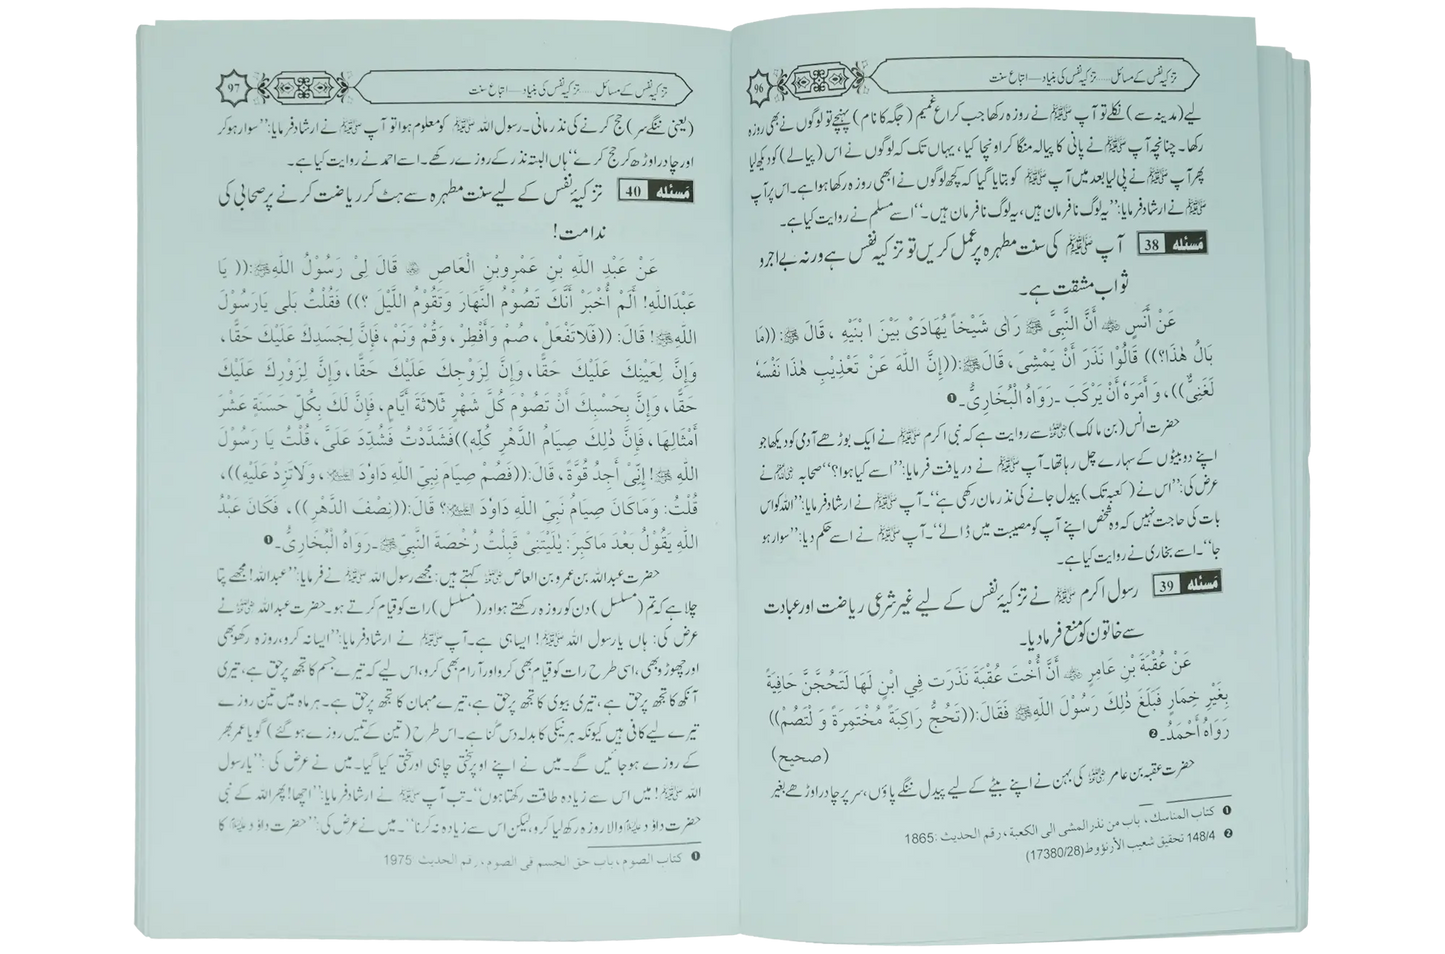 تزکیۂ نفس کے مسائل.....تزکیۂ نفس کی بنیاد—اتباع سنت
96
لیے (مدینہ سے) نکلے تو آپ ﷺ نے روزہ رکھا جب کراع غمیم (جگہ کا نام) پہنچے تو لوگوں نے بھی روزہ
رکھا۔ چنانچہ آپ ﷺ نے پانی کا پیالہ منگا کر اونچا کیا، یہاں تک کہ لوگوں نے اس (پیالے) کو دیکھ لیا
پھر آپ ﷺ نے پی لیا بعد میں آپ ﷺ کو بتایا گیا کہ کچھ لوگوں نے ابھی روزہ رکھا ہوا ہے۔ اس پر آپ
ﷺ نے ارشاد فرمایا: ’’یہ لوگ نافرمان ہیں، یہ لوگ نافرمان ہیں۔‘‘ اسے مسلم نے روایت کیا ہے۔
مَسئلہ 38 آپ ﷺ کی سنت مطہرہ پر عمل کریں تو تزکیۂ نفس ہے ورنہ بے اجر و
ثواب مشقت ہے۔
عَنْ أَنَسٍ ؓ أَنَّ النَّبِیَّ ﷺ رَاٰی شَیْخاً یُهَادَیٰ بَیْنَ ابْنَیْهِ ، قَالَ ﷺ: ((مَا
بَالُ هٰذَا؟)) قَالُوْا نَذَرَ أَنْ یَمْشِیَ، قَالَ ﷺ: ((إِنَّ اللّٰهَ عَنْ تَعْذِیْبِ هٰذَا نَفْسَهٗ
لَغَنِیٌّ))، وَ أَمَرَهٗ أَنْ یَرْکَبَ ۔رَوَاهُ الْبُخَارِیُّ۔ ❶
حضرت انس (بن مالک) ؓ سے روایت ہے کہ نبی اکرم ﷺ نے ایک بوڑھے آدمی کو دیکھا جو
اپنے دو بیٹوں کے سہارے چل رہا تھا۔ آپ ﷺ نے دریافت فرمایا: ’’اسے کیا ہوا؟‘‘ صحابہ ؓ نے
عرض کی: ’’اس نے (کعبہ تک) پیدل جانے کی نذر مان رکھی ہے‘‘۔ آپ ﷺ نے ارشاد فرمایا: ’’اللہ کو اس
بات کی حاجت نہیں کہ وہ شخص اپنے آپ کو مصیبت میں ڈالے‘‘۔ آپ ﷺ نے اسے حکم دیا: ’’سوار ہو
جا‘‘۔ اسے بخاری نے روایت کیا ہے۔
مَسئلہ 39 رسول اکرم ﷺ نے تزکیۂ نفس کے لیے غیر شرعی ریاضت اور عبادت
سے خاتون کو منع فرما دیا۔
عَنْ عُقْبَةَ بْنِ عَامِرٍ ؓ أَنَّ أُخْتَ عُقْبَةَ نَذَرَت فِي ابْنٍ لَهَا لَتَحُجَّنَّ حَافِیَةً
بِغَیْرِ خِمَارٍ فَبَلَغَ ذٰلِكَ رَسُوْلَ اللّٰهِ ﷺ فَقَالَ: ((تَحُجُّ رَاکِبَةً مُخْتَمِرَةً وَ لْتَصُمْ))
رَوَاهُ أَحْمَدُ۔ ❷ (صحیح)
حضرت عقبہ بن عامر ؓ کی بہن نے اپنے بیٹے کے لیے پیدل ننگے پاؤں، سر پر چادر اوڑھے بغیر
❶ کتاب المناسك، باب من نذر المشی الی الکعبة، رقم الحدیث: 1865
❷ 148/4 تحقیق شعیب الأرنؤوط (17380/28)
تزکیۂ نفس کے مسائل.....تزکیۂ نفس کی بنیاد—اتباع سنت
97
(یعنی ننگے سر) حج کرنے کی نذر مانی۔ رسول اللہ ﷺ کو معلوم ہوا تو آپ ﷺ نے ارشاد فرمایا: ’’سوار ہو کر
اور چادر اوڑھ کر حج کرے‘‘ ہاں البتہ نذر کے روزے رکھے۔ اسے احمد نے روایت کیا ہے۔
مَسئلہ 40 تزکیۂ نفس کے لیے سنت مطہرہ سے ہٹ کر ریاضت کرنے پر صحابی کی
ندامت!
عَنْ عَبْدِ اللّٰهِ بْنِ عَمْرِوبْنِ الْعَاصِ ؓ قَالَ لِیْ رَسُوْلُ اللّٰهِ ﷺ: (( یَا
عَبْدَاللّٰهِ! أَلَمْ أُخْبَرْ أَنَّكَ تَصُوْمُ النَّهَارَ وَتَقُوْمُ اللَّیْلَ ؟)) فَقُلْتُ بَلٰی یَارَسُوْلَ
اللّٰهِ ﷺ! قَالَ: ((فَلَاتَفْعَلْ، صُمْ وَأَفْطِرْ، وَقُمْ وَنَمْ، فَإِنَّ لِجَسَدِكَ عَلَیْكَ حَقًّا،
وَإِنَّ لِعَیْنِكَ عَلَیْكَ حَقًّا، وَإِنَّ لِزَوْجِكَ عَلَیْكَ حَقًّا، وَإِنَّ لِزَوْرِكَ عَلَیْكَ
حَقًّا، وَإِنَّ بِحَسْبِكَ أَنْ تَصُوْمَ کُلَّ شَهْرٍ ثَلَاثَةَ أَیَّامٍ، فَإِنَّ لَكَ بِکُلِّ حَسَنَةٍ عَشْرَ
أَمْثَالِهَا، فَإِنَّ ذٰلِكَ صِیَامُ الدَّهْرِ کُلِّهٖ)) فَشَدَّدْتُ فَشُدِّدَ عَلَیَّ، قُلْتُ یَا رَسُوْلَ
اللّٰهِ ﷺ! إِنِّیْ أَجِدُ قُوَّةً، قَالَ: ((فَصُمْ صِیَامَ نَبِیِّ اللّٰهِ دَاوٗدَ ؑ، وَلَاتَزِدْ عَلَیْهِ))،
قُلْتُ: وَمَاکَانَ صِیَامُ نَبِیِّ اللّٰهِ دَاوٗدَ ؑ؟ قَالَ: ((نِصْفَ الدَّهْرِ))، فَکَانَ عَبْدُ
اللّٰهِ یَقُوْلُ بَعْدَ مَاکَبِرَ: یٰلَیْتَنِیْ قَبِلْتُ رُخْصَةَ النَّبِیِّ ﷺ۔رَوَاهُ الْبُخَارِیُّ۔ ❶
حضرت عبداللہ بن عمرو بن العاص ؓ کہتے ہیں: مجھے رسول اللہ ﷺ نے فرمایا: ’’عبداللہ! مجھے پتا
چلا ہے کہ تم (مسلسل) دن کو روزہ رکھتے ہو اور (مسلسل) رات کو قیام کرتے ہو۔ حضرت عبداللہ ؓ نے
عرض کی: ہاں یا رسول اللہ ﷺ! ایسا ہی ہے۔ آپ ﷺ نے ارشاد فرمایا: ’’ایسا نہ کرو، روزہ رکھو بھی
اور چھوڑو بھی، اسی طرح رات کو قیام بھی کرو اور آرام بھی کرو، اس لیے کہ تیرے جسم کا تجھ پر حق ہے، تیری
آنکھ کا تجھ پر حق ہے، تیری بیوی کا تجھ پر حق ہے، تیرے مہمان کا تجھ پر حق ہے۔ ہر ماہ میں تین روزے
تیرے لیے کافی ہیں کیونکہ ہر نیکی کا بدلہ دس گنا ہے۔ اس طرح (تین کے تیس روزے ہو گئے) گویا عمر بھر
کے روزے ہو جائیں گے۔ میں نے اپنے اوپر سختی چاہی اور سختی کیا گیا۔ میں نے عرض کی: ’’یا رسول
اللہ ﷺ! میں اس سے زیادہ طاقت رکھتا ہوں‘‘۔ تب آپ ﷺ نے ارشاد فرمایا: ’’اچھا! پھر اللہ کے نبی
حضرت داؤد ؑ والا روزہ رکھ لیا کرو، لیکن اس سے زیادہ نہ کرنا‘‘۔ میں نے عرض کی: ’’حضرت داؤد ؑ کا
❶ کتاب الصوم، باب حق الجسم فی الصوم، رقم الحدیث: 1975